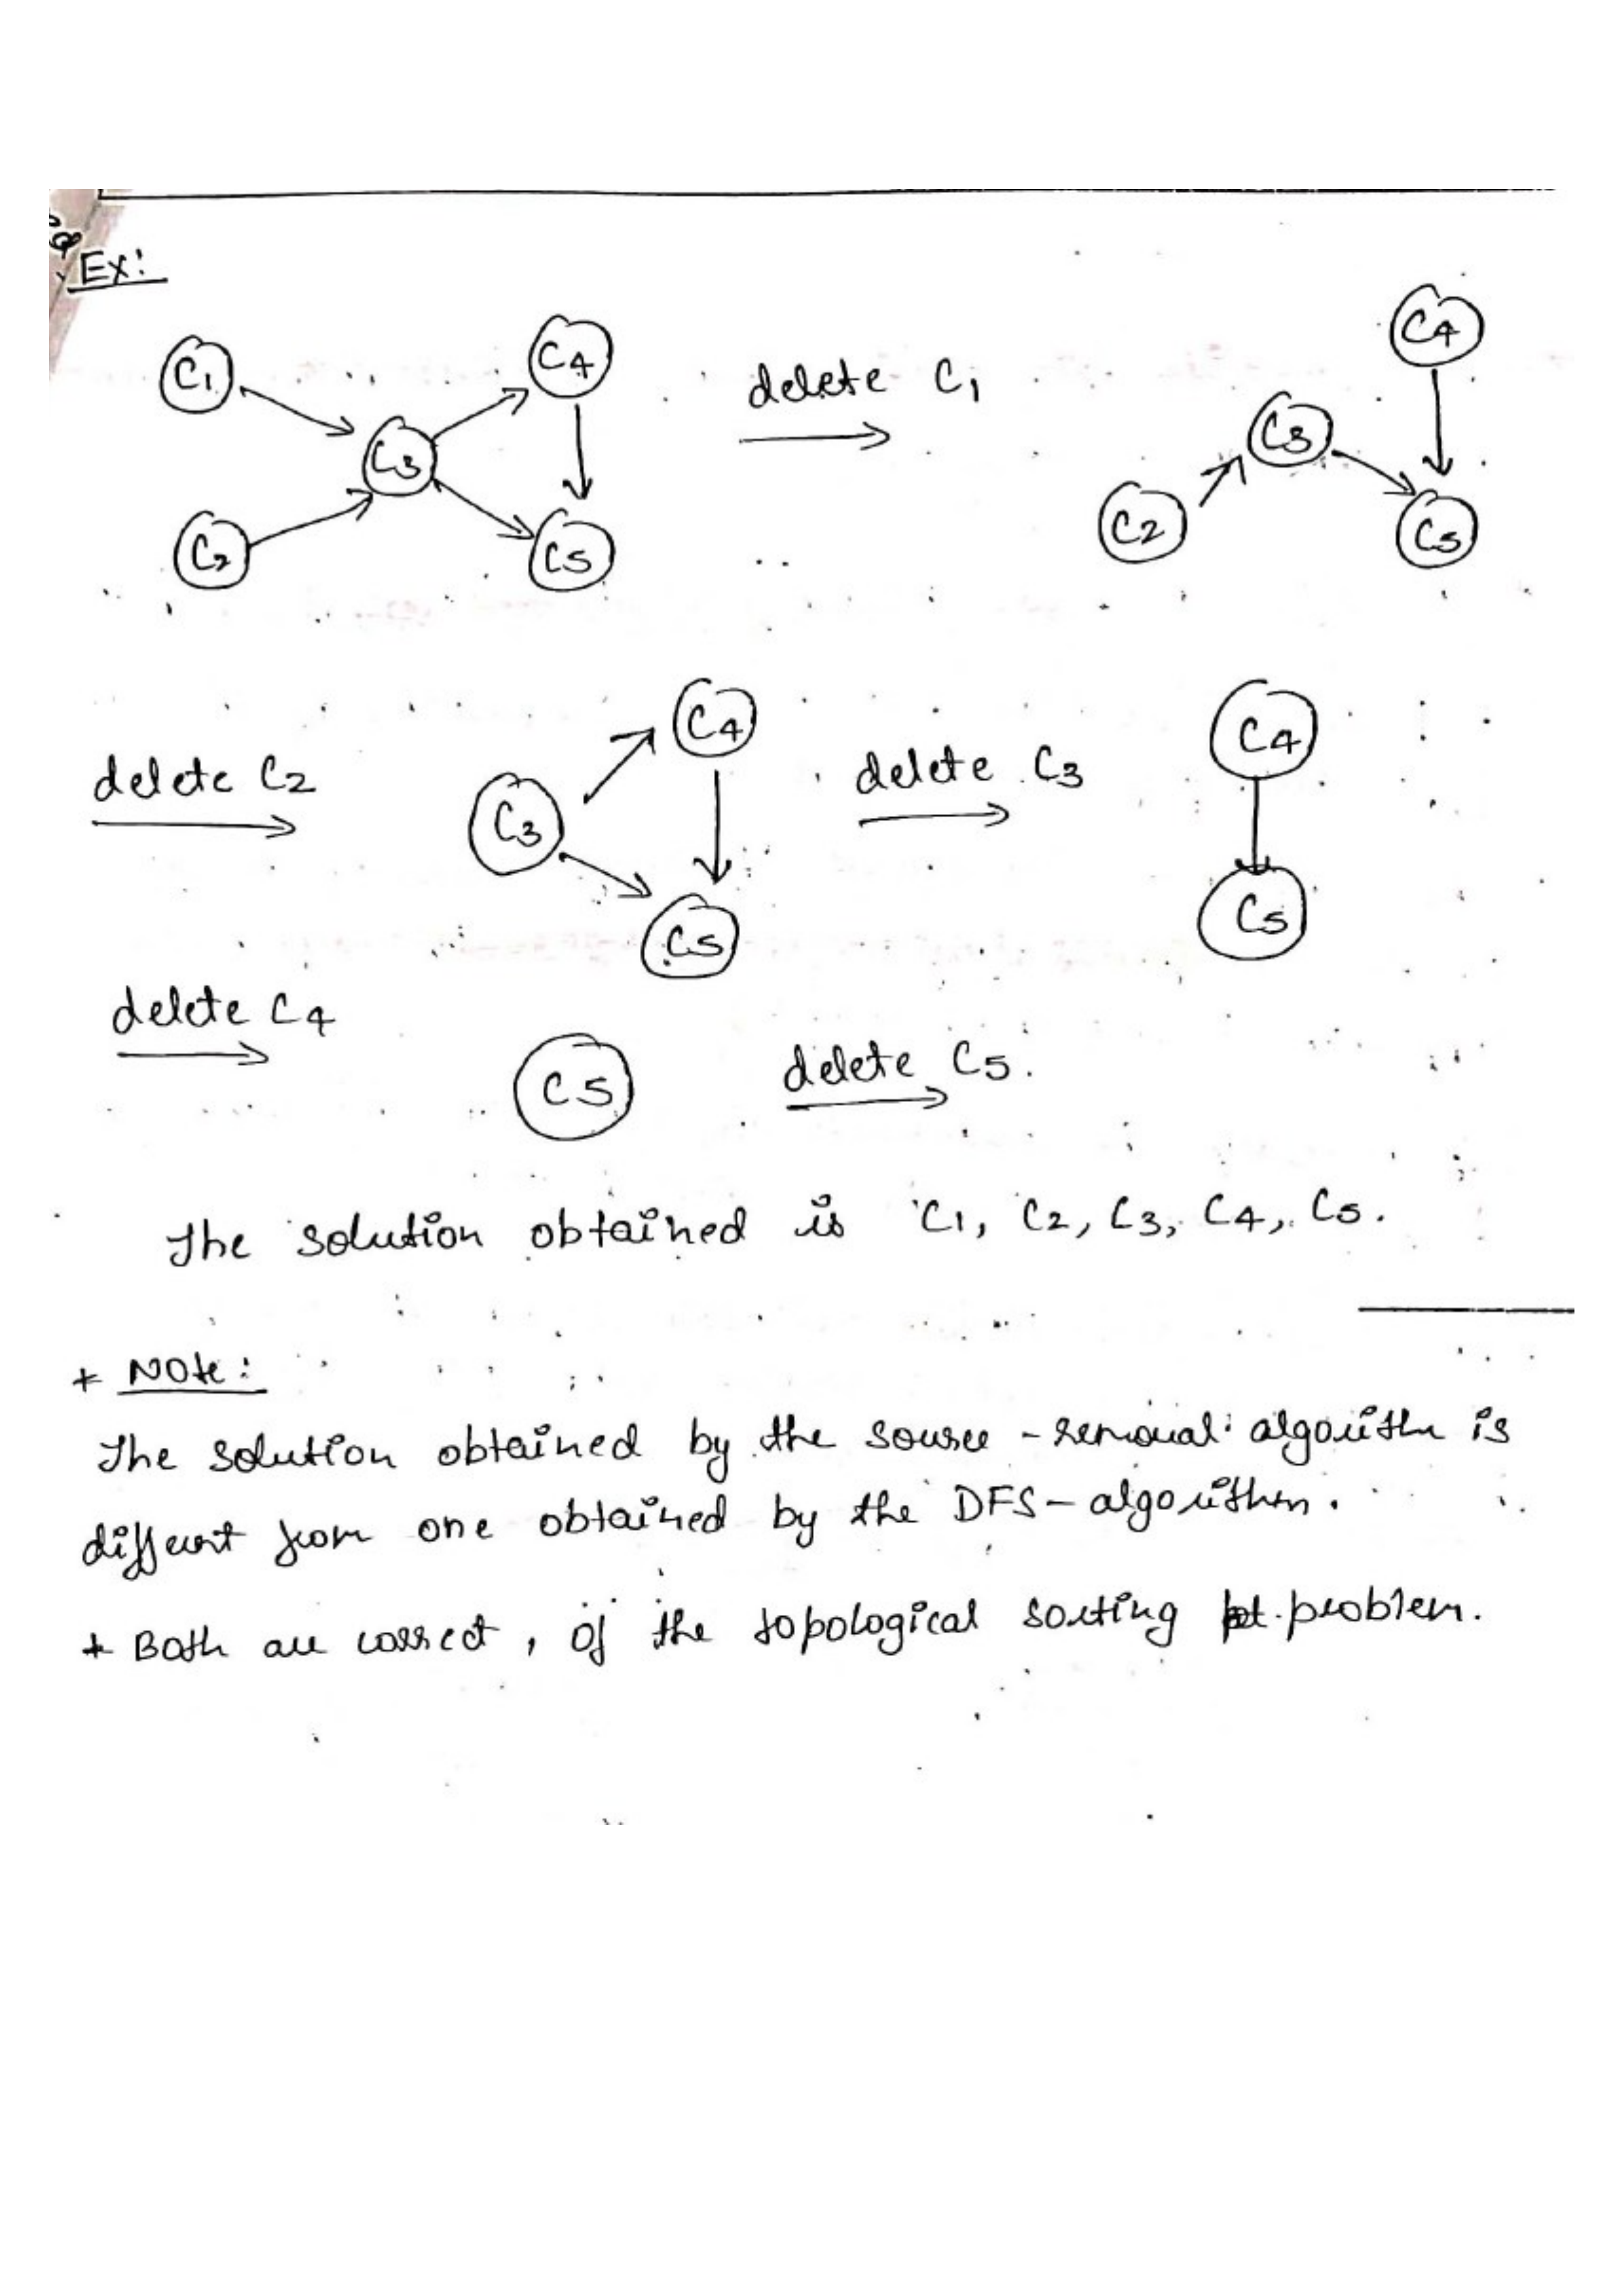 Ex:
C1 C4 delete C1 C4
C3 C3
C2 C5 C2 C5
C4 C4
delete C2 C3 delete C3
C5 C5
delete C4
C5 delete C5.
The solution obtained is C1, C2, C3, C4, C5.
* Note:
The solution obtained by the source-removal algorithm is
different from one obtained by the DFS-algorithm.
* Both are correct, of the topological sorting problem.